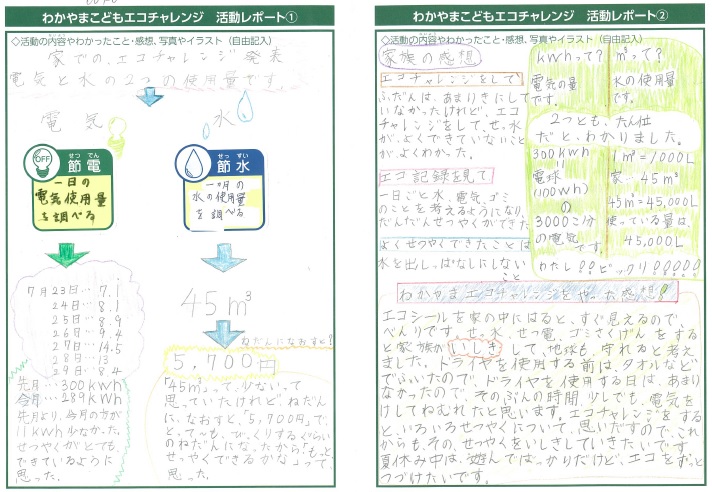 わかやまこどもエコチャレンジ 活動レポート①
◇活動の内容やわかったこと・感想、写真やイラスト（自由記入）
家での、エコチャレンジ発表
電気と水の2つの使用量です。
電気
水
OFF
節電
せつでん
一日の
電気使用量
を調べる
節水
せっすい
一ヶ月の
水の使用量
を調べる
7月23日…7.1
24日…8.1
25日…8.9
26日…9.4
27日…14.5
28日…13
29日…8.4
先月…300kwh
今月…289kwh
先月より、今月の方が
11kwh少なかった。
せつやくがとても
できているように
思った。
45m³
ねだんになおすと?
5,700円
「45m³」って少ないって
思っていたけれど、ねだん
に、なおすと、「5,700円」で、
と、て〜も、びっくりするぐらい
のねだんだな。だから「もっと
せつやくできるかな」って
思った。
わかやまこどもエコチャレンジ 活動レポート②
◇活動の内容やわかったこと・感想、写真やイラスト（自由記入）
家族の感想
エコチャレンジをして
ふだんは、あまりきにして
いなかったけれど、エコ
チャレンジをして、せ、水
が、よくできていないこと
が、よくわかった。
エコ記録を見て
一日ごと水、電気、ゴミ
のことを考えるようになり、
だんだんせつやくができた
よくせつやくできたことは
水を出しっぱなしにしない
こと
kwhって?
電気の量
です。
m³って?
水の使用量
です。
2つとも、たん位
だと、わかりました。
300kwh
=
電球
(100wh)
の
3000こ分
の電気
です。
1m³=1000L
家…45m³
45m³=45,000L
使っている量は、
45,000L
わたし!?ビックリ!!!!!
わかやまエコチャレンジをやった感想!
エコシールを家の中にはると、すぐ見えるので、
べんりです。せ、水、せつ電、ゴミさくげんをする
と家族がいしきして、地球も、守れると考え
ました。ドライヤを使用する前は、タオルなど
でふいたので、ドライヤを使用する日は、あまり
なかったので、そのぶんの時間、少しでも、電気を
けしてねむれたと思います。エコチャレンジをする
と、いろいろせつやくについて、思いだすので、これ
からも、その、せつやくをいしきしていきたいです。
夏休み中は、遊んでばっかりだけど、エコをずっと
つづけたいです。